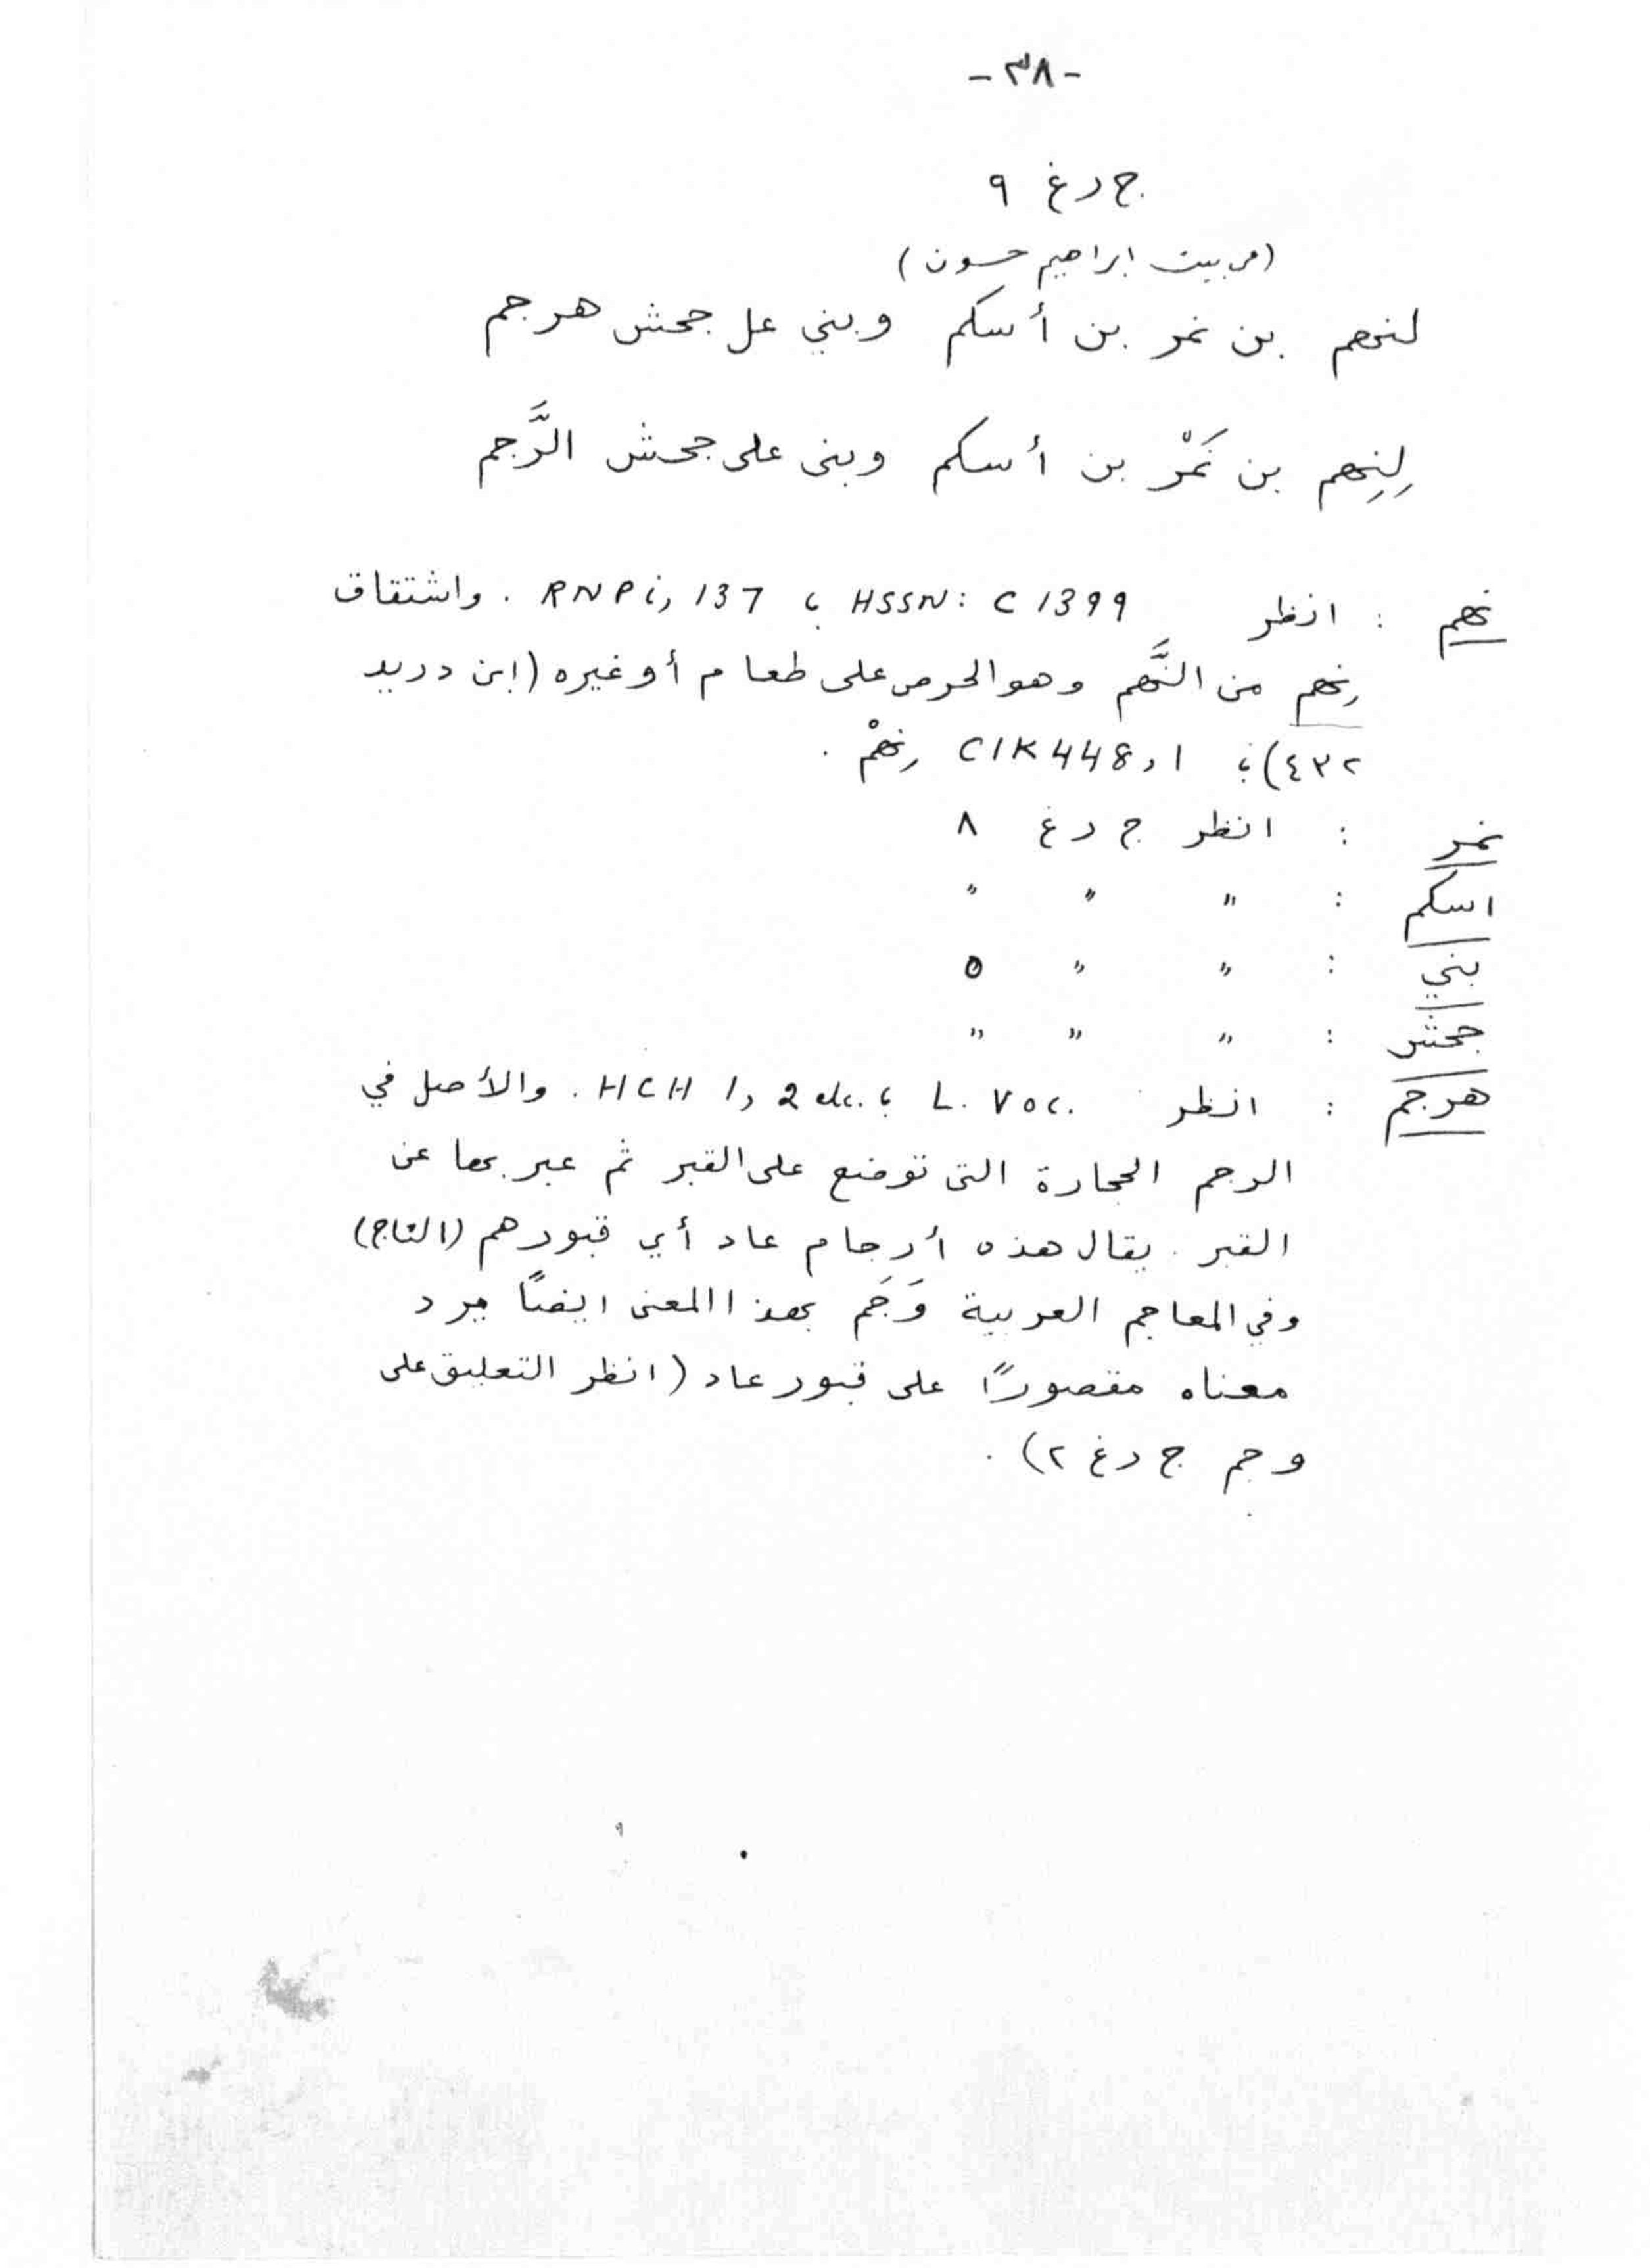 -٣٨-
ج د غ ٩
(من بيت ابراهيم حسون)
لنهم بن نمر بن أسكم وبني عل جحش هرجم
لِنِهم بن نَمْر بن أسكم وبنى على جحش الرَّجم
نهم : انظر HSSN: C 1399 ؛ RNP i, 137 . واشتقاق
نِهم من النَّهم وهو الحرص على طعام أو غيره (ابن دريد
٤٣٢)؛ CIK 448, 1 نِهْم .
نمر : انظر ج د غ ٨
اسكم : " " "
بني : " " ٥
جحش : " " "
هرجم : انظر L. Voc. ؛ HCH 1, 2 etc. . والأصل في
الرجم الحجارة التى توضع على القبر ثم عبر بها عن
القبر . يقال هذه أرجام عاد أي قبورهم (التاج)
وفي المعاجم العربية وَجَم بهذا المعنى ايضًا يرد
معناه مقصورًا على قبور عاد (انظر التعليق على
وجم ج د غ ٢) .